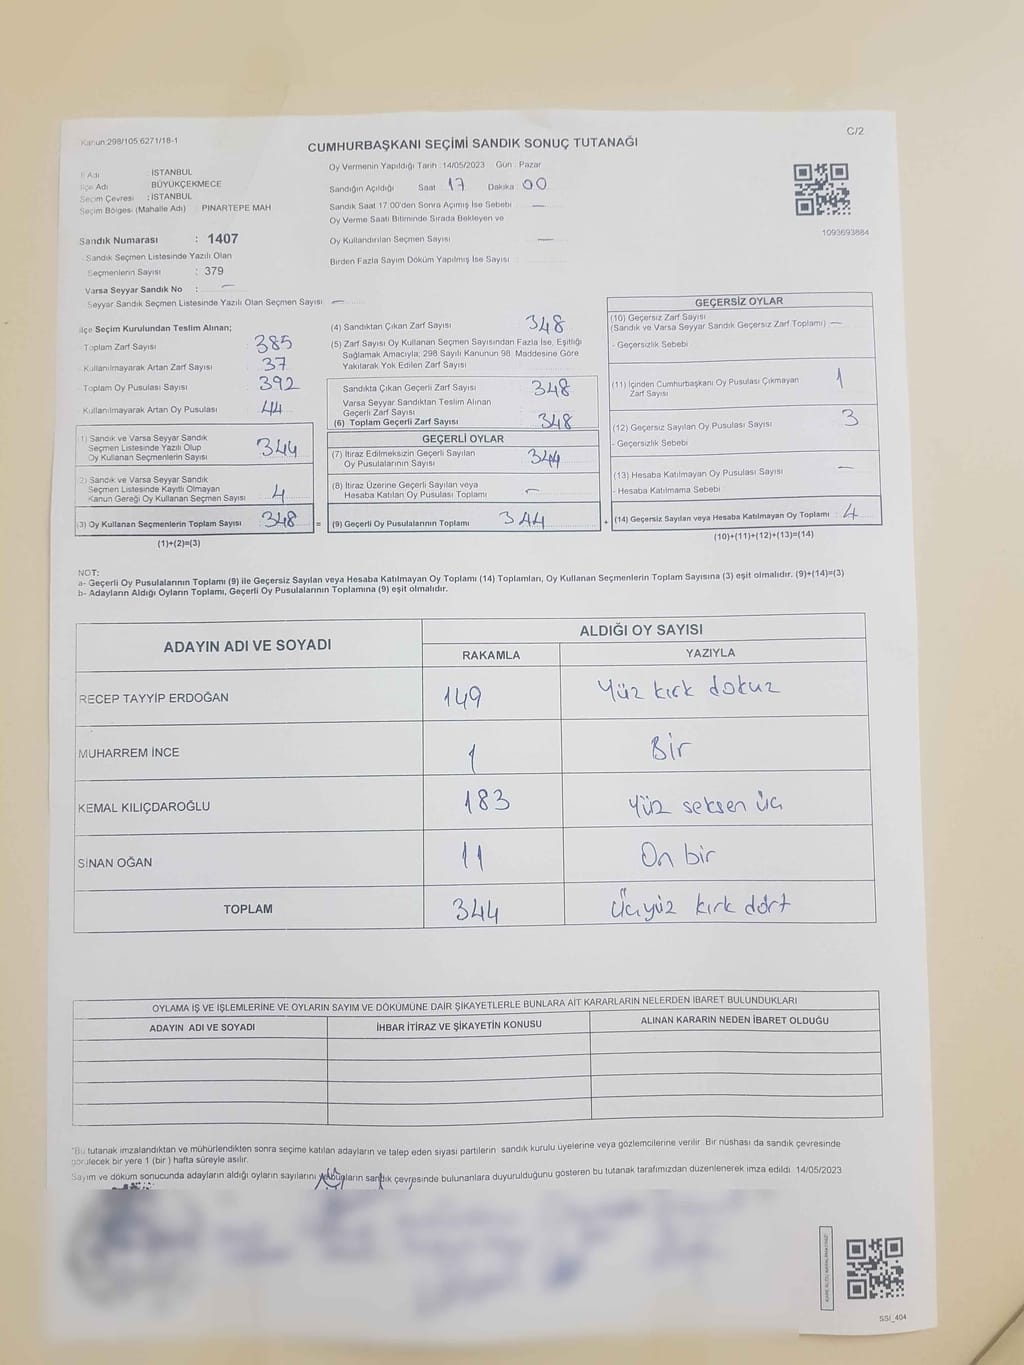 Kanun:298/105 6271/18-1
C/2
CUMHURBAŞKANI SEÇİMİ SANDIK SONUÇ TUTANAĞI
İl Adı : İSTANBUL
İlçe Adı BÜYÜKÇEKMECE
Seçim Çevresi : İSTANBUL
Seçim Bölgesi (Mahalle Adı) PINARTEPE MAH
Sandık Numarası : 1407
Sandık Seçmen Listesinde Yazılı Olan
Seçmenlerin Sayısı : 379
Varsa Seyyar Sandık No : —
Seyyar Sandık Seçmen Listesinde Yazılı Olan Seçmen Sayısı —
Oy Vermenin Yapıldığı Tarih :14/05/2023 Gün : Pazar
Sandığın Açıldığı Saat 17 Dakika 00
Sandık Saat 17:00'den Sonra Açımış İse Sebebi —
Oy Verme Saati Bitiminde Sırada Bekleyen ve
Oy Kullandırılan Seçmen Sayısı —
Birden Fazla Sayım Döküm Yapılmış İse Sayısı
1093693884
İlçe Seçim Kurulundan Teslim Alınan;
Toplam Zarf Sayısı : 385
Kullanılmayarak Artan Zarf Sayısı : 37
Toplam Oy Pusulası Sayısı : 392
Kullanılmayarak Artan Oy Pusulası : 44
1) Sandık ve Varsa Seyyar Sandık
Seçmen Listesinde Yazılı Olup
Oy Kullanan Seçmenlerin Sayısı : 344
2) Sandık ve Varsa Seyyar Sandık
Seçmen Listesinde Kayıtlı Olmayan
Kanun Gereği Oy Kullanan Seçmen Sayısı : 4
(3) Oy Kullanan Seçmenlerin Toplam Sayısı : 348
(1)+(2)=(3)
(4) Sandıktan Çıkan Zarf Sayısı 348
(5) Zarf Sayısı Oy Kullanan Seçmen Sayısından Fazla İse, Eşitliği
Sağlamak Amacıyla; 298 Sayılı Kanunun 98. Maddesine Göre
Yakılarak Yok Edilen Zarf Sayısı
Sandıkta Çıkan Geçerli Zarf Sayısı 348
Varsa Seyyar Sandıktan Teslim Alınan
Geçerli Zarf Sayısı
(6) Toplam Geçerli Zarf Sayısı 348
GEÇERLİ OYLAR
(7) İtiraz Edilmeksizin Geçerli Sayılan
Oy Pusulalarının Sayısı 344
(8) İtiraz Üzerine Geçerli Sayılan veya
Hesaba Katılan Oy Pusulası Toplamı —
= (9) Geçerli Oy Pusulalarının Toplamı 344
GEÇERSİZ OYLAR
(10) Geçersiz Zarf Sayısı
(Sandık ve Varsa Seyyar Sandık Geçersiz Zarf Toplamı) —
- Geçersizlik Sebebi
(11) İçinden Cumhurbaşkanı Oy Pusulası Çıkmayan
Zarf Sayısı 1
(12) Geçersiz Sayılan Oy Pusulası Sayısı 3
- Geçersizlik Sebebi
(13) Hesaba Katılmayan Oy Pusulası Sayısı —
- Hesaba Katılmama Sebebi
+ (14) Geçersiz Sayılan veya Hesaba Katılmayan Oy Toplamı : 4
(10)+(11)+(12)+(13)=(14)
NOT:
a- Geçerli Oy Pusulalarının Toplamı (9) ile Geçersiz Sayılan veya Hesaba Katılmayan Oy Toplamı (14) Toplamları, Oy Kullanan Seçmenlerin Toplam Sayısına (3) eşit olmalıdır. (9)+(14)=(3)
b- Adayların Aldığı Oyların Toplamı, Geçerli Oy Pusulalarının Toplamına (9) eşit olmalıdır.
ADAYIN ADI VE SOYADI
ALDIĞI OY SAYISI
RAKAMLA YAZIYLA
RECEP TAYYİP ERDOĞAN 149 Yüz kırk dokuz
MUHARREM İNCE 1 Bir
KEMAL KILIÇDAROĞLU 183 Yüz seksen üç
SİNAN OĞAN 11 On bir
TOPLAM 344 Üçyüz kırk dört
OYLAMA İŞ VE İŞLEMLERİNE VE OYLARIN SAYIM VE DÖKÜMÜNE DAİR ŞİKAYETLERLE BUNLARA AİT KARARLARIN NELERDEN İBARET BULUNDUKLARI
ADAYIN ADI VE SOYADI İHBAR İTİRAZ VE ŞİKAYETİN KONUSU ALINAN KARARIN NEDEN İBARET OLDUĞU
*Bu tutanak imzalandıktan ve mühürlendikten sonra seçime katılan adayların ve talep eden siyasi partilerin sandık kurulu üyelerine veya gözlemcilerine verilir. Bir nüshası da sandık çevresinde
görülecek bir yere 1 (bir) hafta süreyle asılır.
Sayım ve döküm sonucunda adayların aldığı oyların sayılarını ve bunların sandık çevresinde bulunanlara duyurulduğunu gösteren bu tutanak tarafımızdan düzenlenerek imza edildi. 14/05/2023
SSI_404